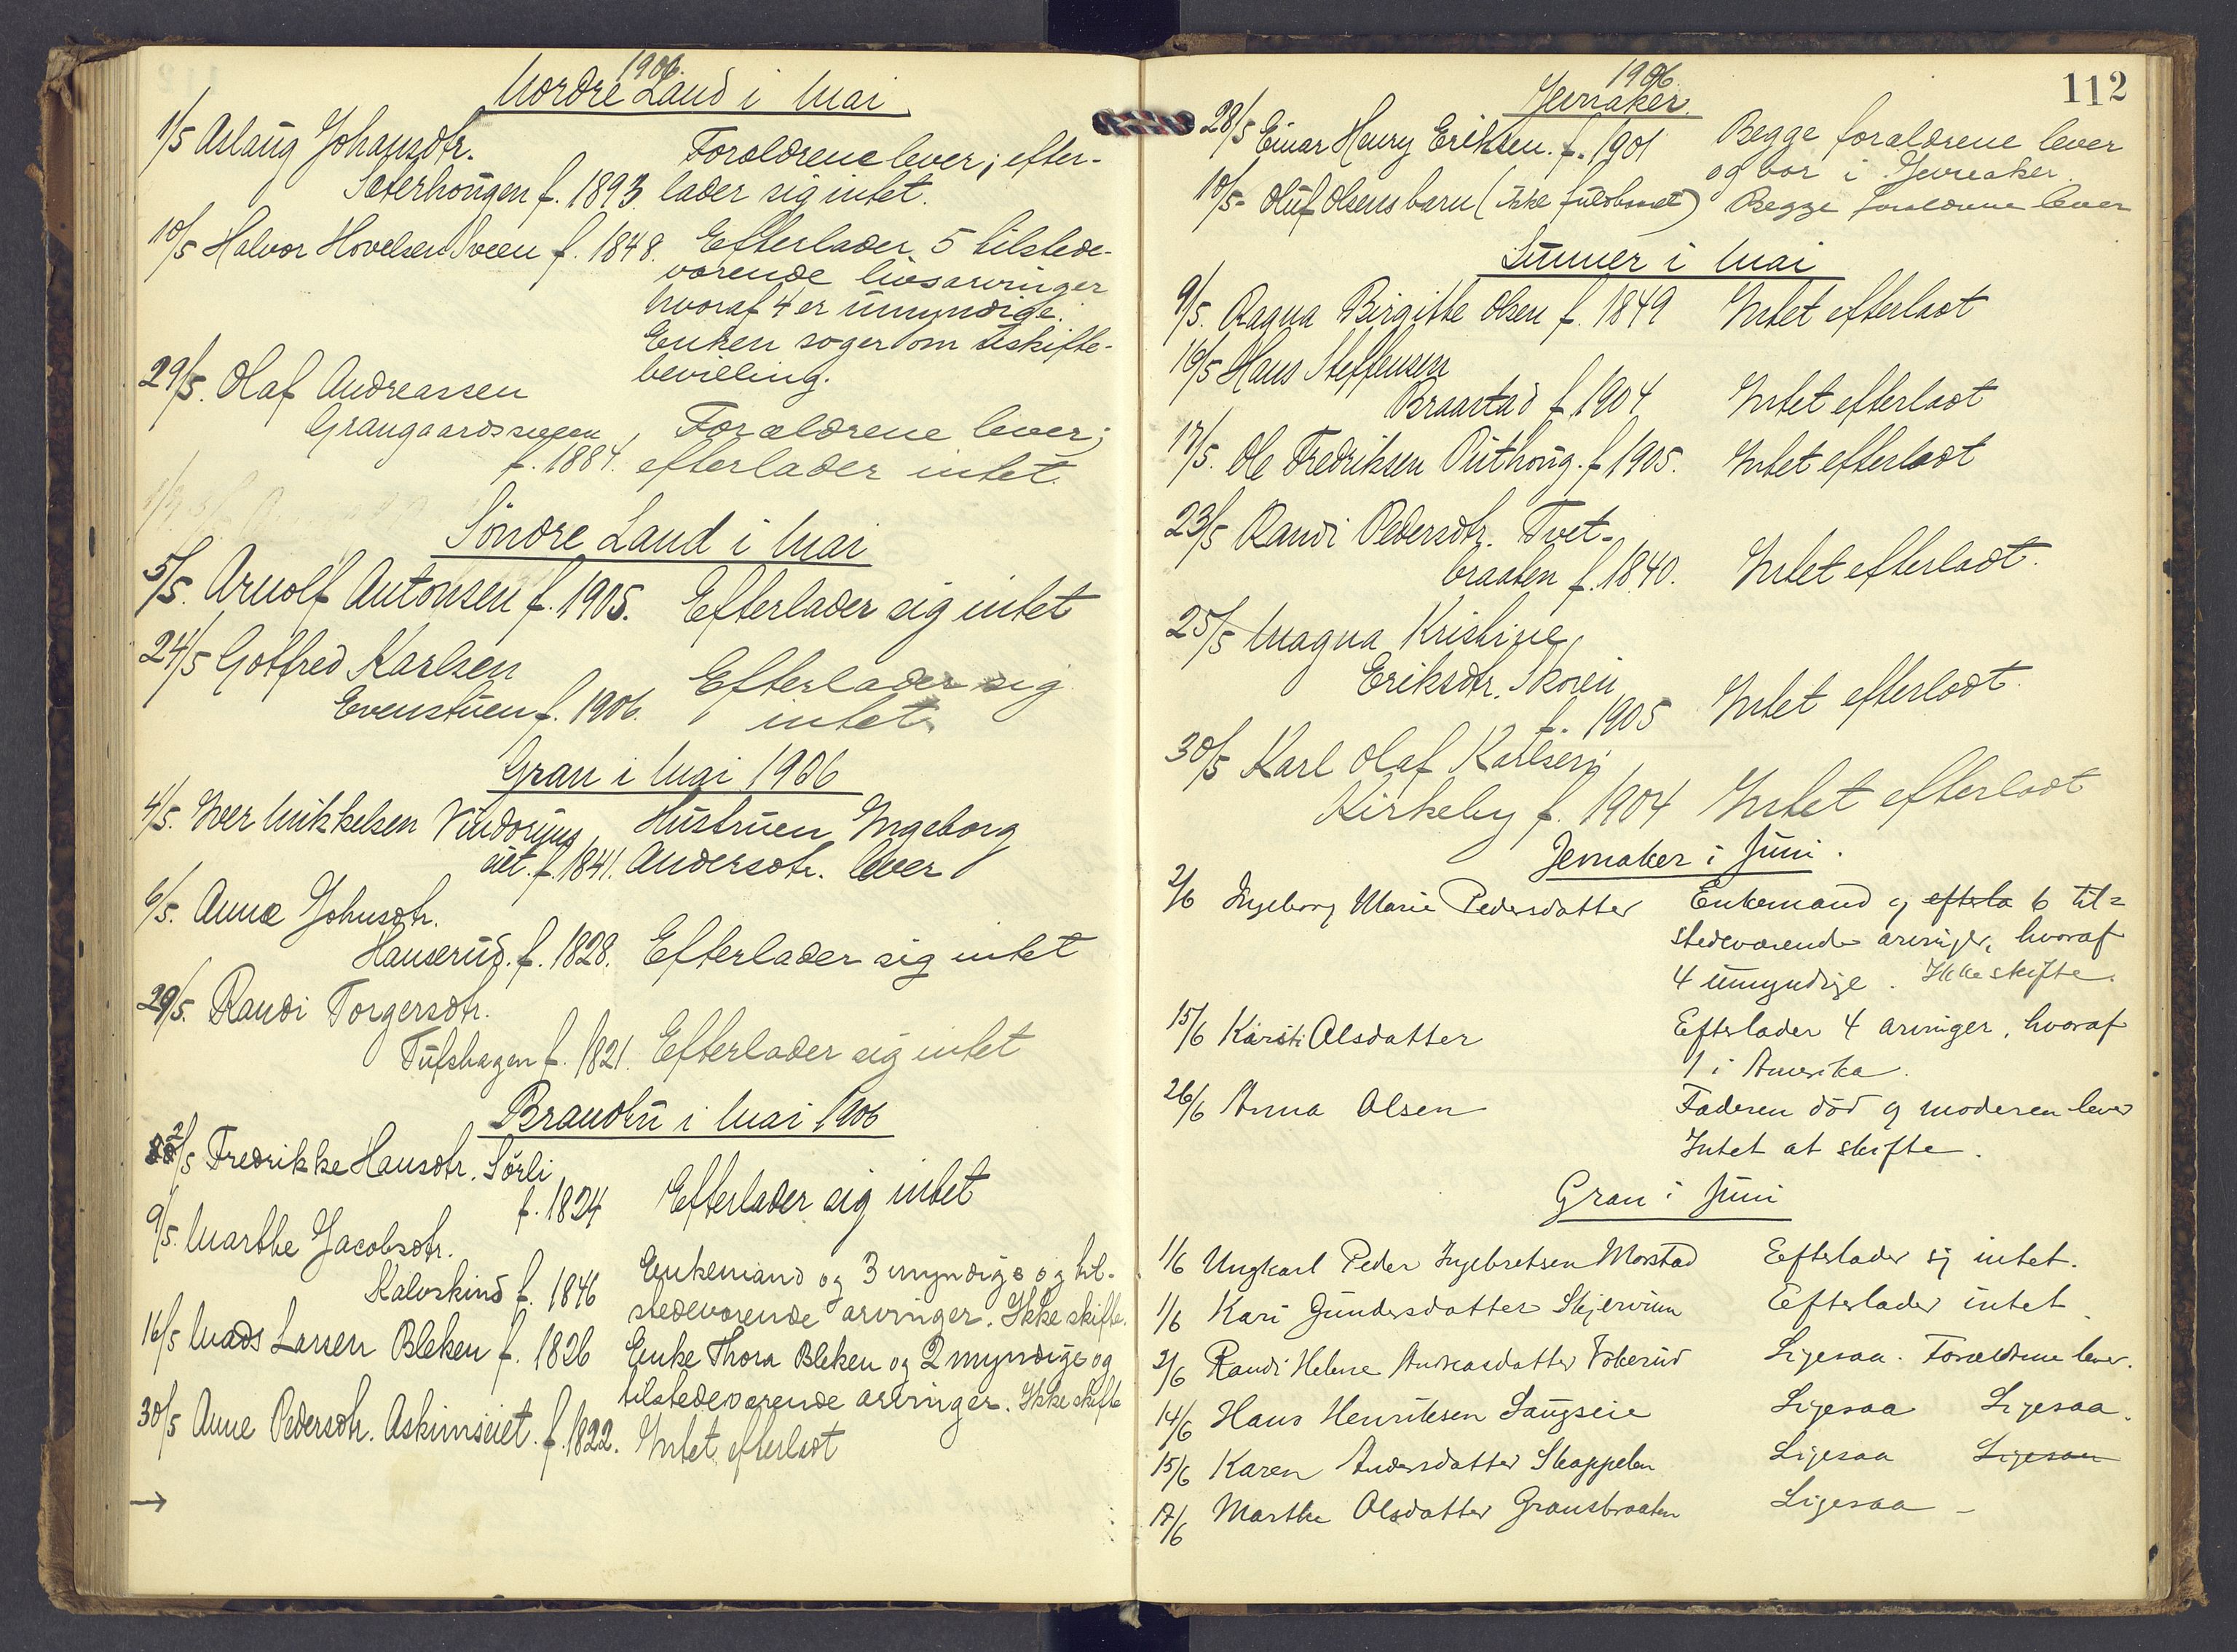 1906.
Nordre Land i Mai
1/5 Aslaug Johansdtr. Forældrene lever; efter-
Sæterhougen f. 1893. lader sig intet.
10/5 Halvor Hovelsen Sveen f. 1848. Efterlader 5 tilstede-
værende livsarvinger
hvoraf 4 er umyndige.
Enken søger om uskifte-
bevilling.
29/5. Olaf Andreassen
Grangaardsveen, Forældrene lever;
f. 1884. efterlader intet.
Söndre Land i Mai
5/5. Arnolf Antonsen f. 1905. Efterlader sig intet
24/5 Gotfred Karlsen Efterlader sig
Evenstuen f. 1906. intet.
Gran i Mai 1906
4/5. Iver Mikkelsen Vindorums Hustruen Ingeborg
eiet. f. 1841. Andersdtr. lever
6/5. Anne Johnsdtr.
Hanserud. f. 1828. Efterlader sig intet
29/5. Randi Torgersdtr.
Tufshagen f. 1821. Efterlader sig intet
Brandbu i Mai 1906
2/5 Fredrikke Hansdtr. Sörli
f. 1824 Efterlader sig intet
9/5. Marthe Jacobsdtr.
Kalvskind f. 1846 Enkemand og 3 myndige og til-
stedeværende arvinger. Ikke skifte.
16/5 Mads Larsen Bleken f. 1826 Enke Thora Bleken og 2 myndige og
tilstedeværende arvinger. Ikke skifte
30/5 Anne Pedersdtr. Askimseiet. f. 1822. Intet efterladt
→
112
1906.
Jevnaker.
28/5 Einar Henry Eriksen. f. 1901 Begge forældrene lever
og bor i Jevnaker.
10/5- Oluf Olsens barn (ikke fuldbaaret) Begge forældrene lever
Lunner i Mai
9/5. Ragna Birgitte Olsen f. 1849 Intet efterladt
16/5 Hans Steffensen
Braastad f. 1904 Intet efterladt
17/5. Ole Fredriksen Puthoug. f. 1905. Intet efterladt
23/5 Randi Pedersdtr. Tvet-
braaten f. 1840. Intet efterladt.
25/5 Magna Kristine
Eriksdtr. Skoien
f. 1905 Intet efterladt.
30/5 Karl Olaf Karlsen
Kirkeby f. 1904 Intet efterladt
Jevnaker i Juni.
2/6 Ingeborg Marie Pedersdatter Enkemand og efterla 6 til=
stedeværende arvinger, hvoraf
4 umyndige. Ikke skifte.
15/6 Karsti Olsdatter Efterlader 4 arvinger, hvoraf
1 i Amerika.
26/6 Anna Olsen Faderen död og moderen lever
Intet at skifte.
Gran i Juni
1/6 Ungkarl Peder Ingebretsen Morstad Efterlader sig intet.
1/6 Kari Gundersdatter Skjervum Efterlader intet
2/6 Randi Helene Andreasdatter Vokerud Ligesaa. Forældrene lever.
14/6 Hans Henriksen Saugseie Ligesaa Ligesaa.
15/6 Karen Andersdatter Skappelen Ligesaa Ligesaa
17/6 Marthe Olsdatter Gransbraaten Ligesaa -